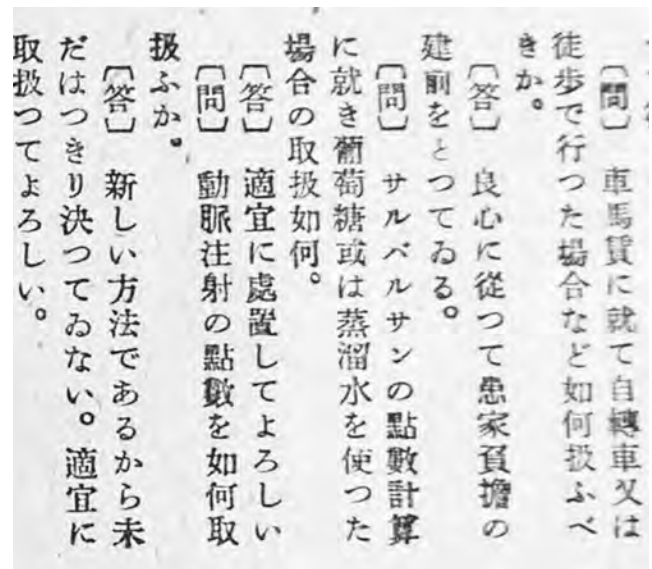 〔問〕　車馬賃に就て自轉車又は
徒歩で行つた場合など如何扱ふべ
きか。
〔答〕　良心に從つて患家負擔の
建前をとつてゐる。
〔問〕　サルバルサンの點數計算
に就き葡萄糖或は蒸溜水を使つた
場合の取扱如何。
〔答〕　適宜に處置してよろしい
〔問〕　動脈注射の點數を如何取
扱ふか。
〔答〕　新しい方法であるから未
だはつきり決つてゐない。適宜に
取扱つてよろしい。